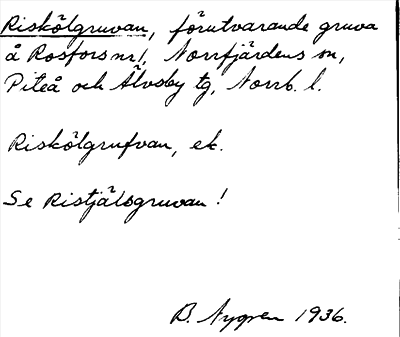 Riskölgruvan, förutvarande gruva
å Rosfors nr 1, Norrfjärdens sn,
Piteå och Älvsby tg, Norrb. l.
Riskölgrufvan, ek.
Se Ristjälsgruvan!
B. Nygren 1936.